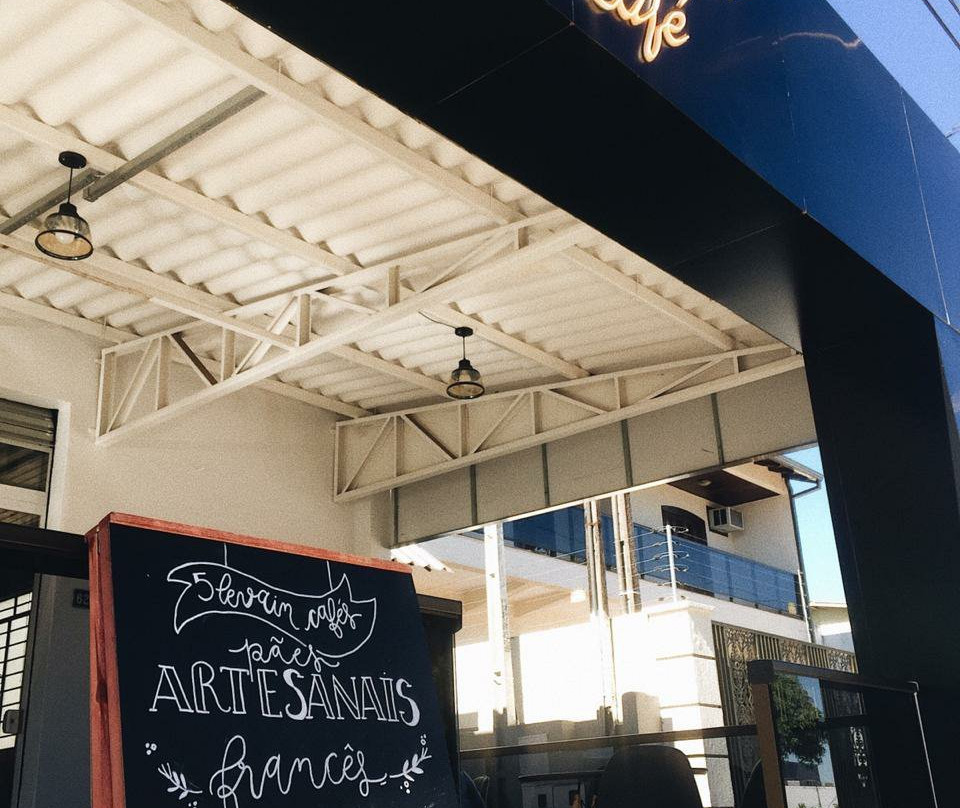 café
5 levain cafés
pães
ARTESANAIS
francês